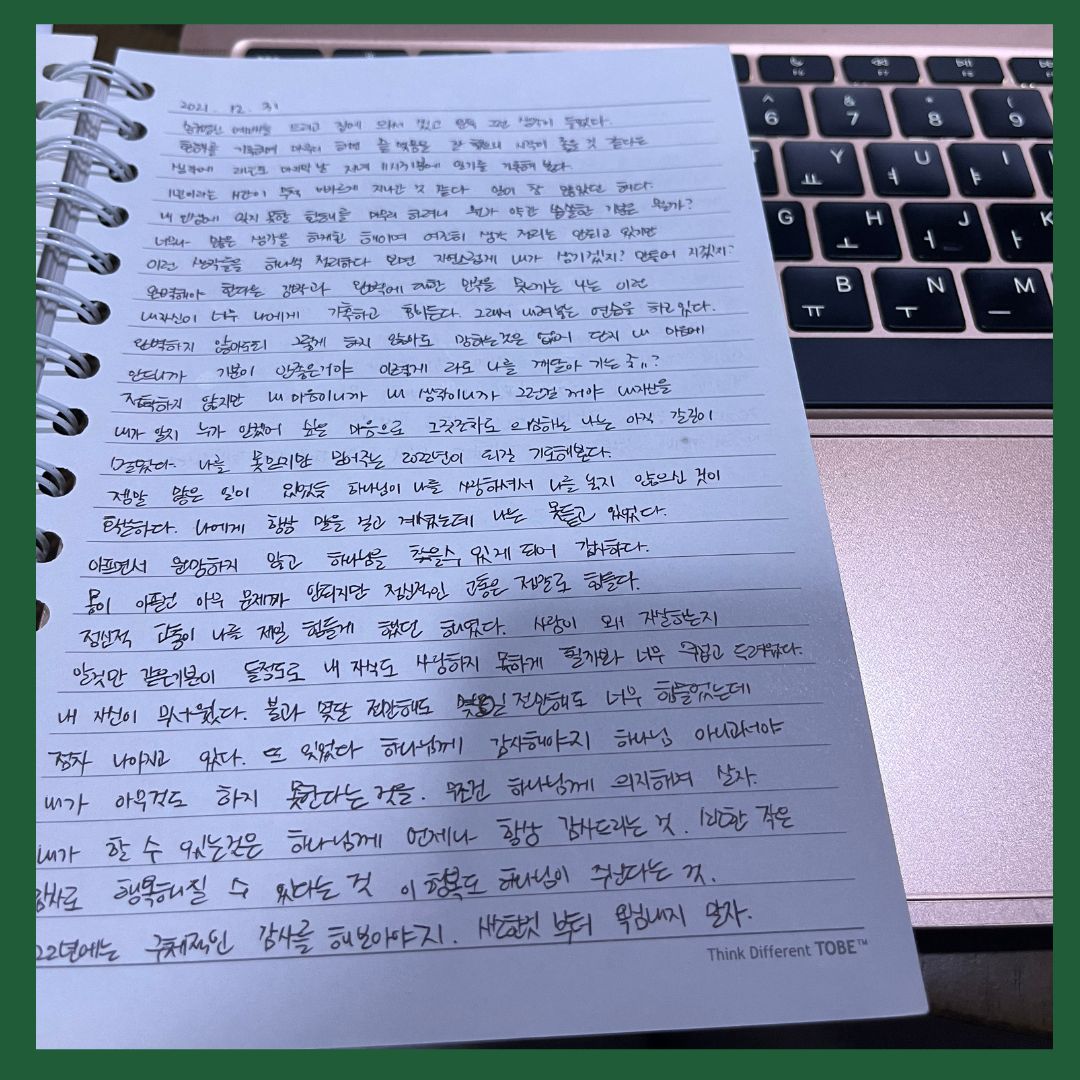 2021. 12. 31
예배를 드리고 집에 와서 씻고 문득 그런 생각이 들었다.
한해를 기록하며 마무리 하면 끝 맺음도 잘 했으니 시작이 좋을 것 같다는
생각에 마지막 날 저녁 11시 기록해 본다.
1년이라는 시간이 무척 빠르게 지나간 것 같다 일이 참 많았던 해다.
내 인생에 잊지 못할 한해를 마무리 하려니 뭔가 약간 씁쓸한 기분은 뭘까?
너무나 많은 생각을 하게한 해이며 여전히 생각 정리는 안되고 있지만
이런 생각들을 하나씩 정리하다 보면 자연스럽게 내가 생기겠지? 만들어 지겠지?
완벽해야 한다는 강박과 완벽에 대한 나는 이런
내자신이 너무 나에게 가혹하고 힘이든다. 그래서 내려놓는 연습을 하고 있다.
완벽하지 않아도 그렇게 하지 않아도 망하는것은 없어 단지 내 마음에
안드니까 기분이 안좋은거야 이렇게 라도 나를 깨달아 가는 중..?
정확하지 않지만 내 마음이니까 내 생각이니까 그런걸 거야 내자신을
내가 알지 누가 알겠어 싶은 마음으로 그것조차도 의심하는 나는 아직 갈길이
멀었다. 나를 믿어주는 2022년이 되길 기도해본다.
정말 많은 일이 있었듯 하나님이 나를 사랑하셔서 나를 놓지 않으신 것이
확실하다. 나에게 항상 말을 걸고 계셨는데 나는 못듣고 있었다.
아프면서 원망하지 않고 하나님을 찾을수 있게 되어 감사하다.
몸이 아픈건 아무 문제가 안되지만 정신적인 고통은 정말로 힘들다.
정신적 고통이 나를 제일 힘들게 했던 해였다. 사람이 왜 자살하는지
알것만 같은기분이 들정도로 내 자식도 사랑하지 못하게 될까봐 너무 무섭고 두려웠다.
내 자신이 무서웠다. 불과 몇달 전만해도 몇일 전만해도 너무 힘들었는데
점차 나아지고 있다. 또 잊었다 하나님께 감사해야지 하나님 아니고서야
내가 아무것도 하지 못한다는 것을. 무조건 하나님께 의지하며 살자.
내가 할 수 있는건은 하나님께 언제나 항상 감사드리는 것. 작은
감사로 행복해질 수 있다는 것 이 행복도 하나님이 주신다는 것.
22년에는 구체적인 감사를 해보아야지. 부터 욕심내지 말자.
Think Different TOBE™
^ 6
& 7
* 8
( 9
F6
F7
F8
Y ㅛ
U ㅕ
I ㅑ
G ㅎ
H ㅗ
J ㅓ
K ㅏ
B ㅠ
N ㅜ
M ㅡ